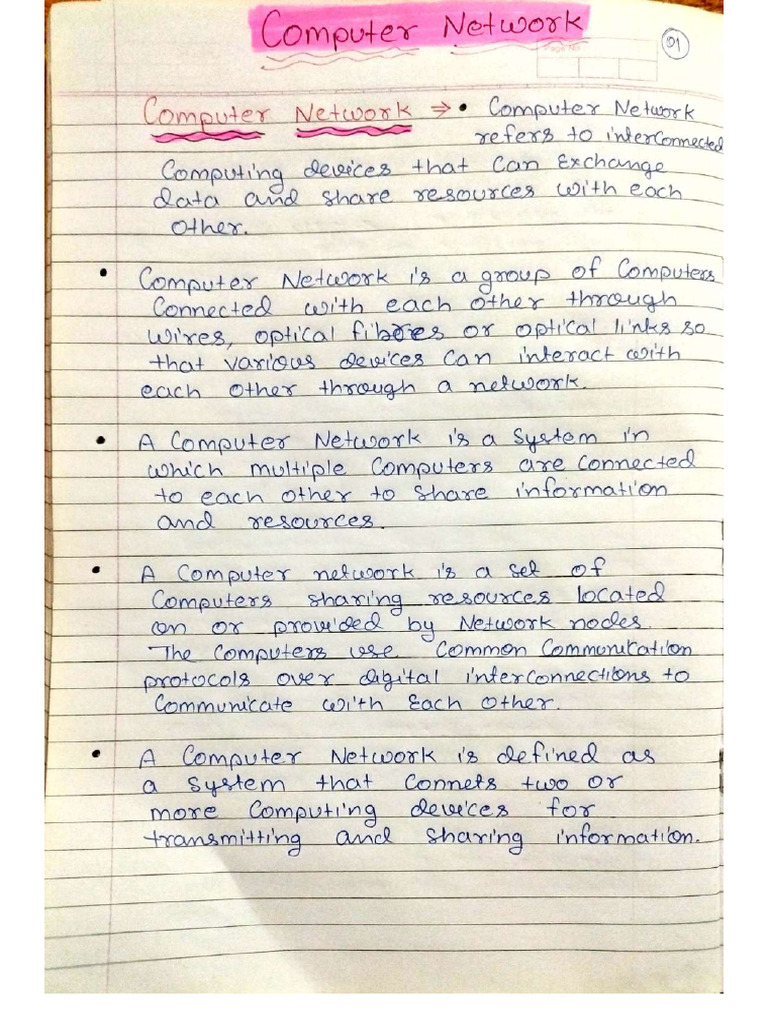 Computer Network
01
Page No.
Computer Network ⇒ • Computer Network
refers to interconnected
Computing devices that can Exchange
data and share resources with each
other.
• Computer Network is a group of Computers
Connected with each other through
wires, optical fibres or optical links so
that various devices can interact with
each other through a network.
• A Computer Network is a system in
which multiple Computers are connected
to each other to share information
and resources.
• A Computer network is a set of
Computers sharing resources located
on or provided by Network nodes.
The Computers use Common Communication
protocols over digital interconnections to
Communicate with Each Other.
• A Computer Network is defined as
a system that Connets two or
more Computing devices for
transmitting and sharing information.